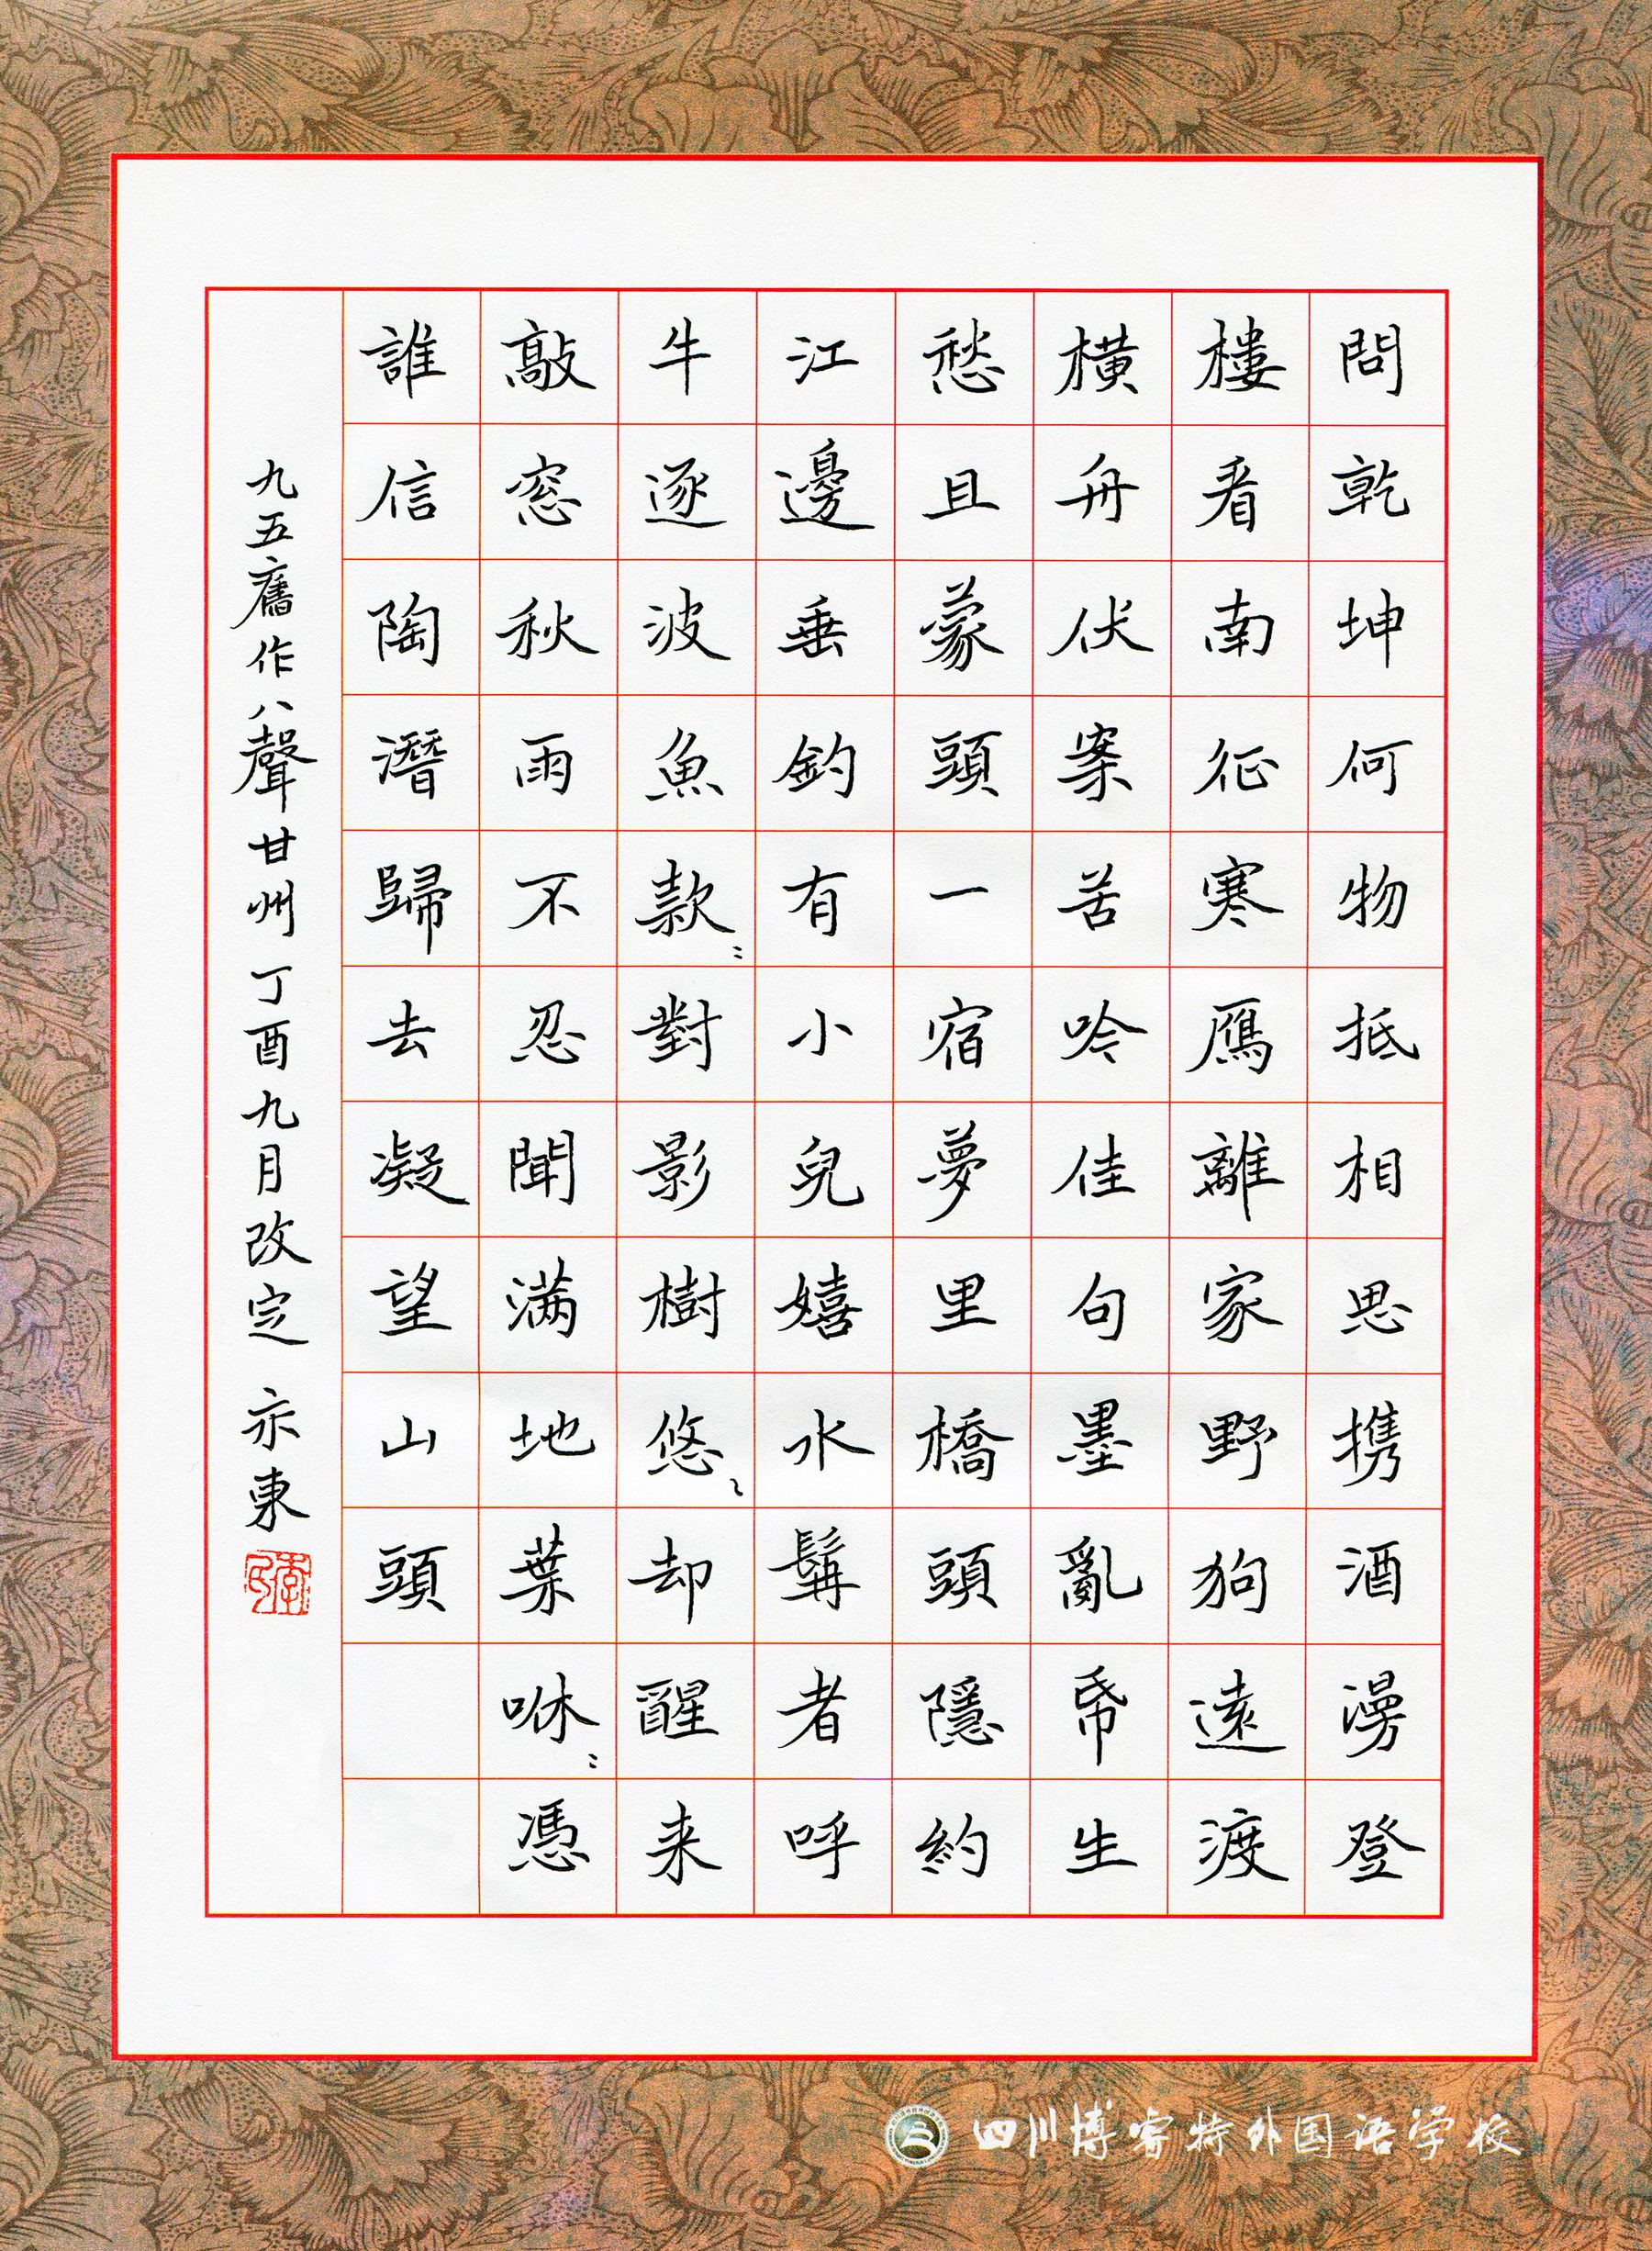 問乾坤何物抵相思携酒漫登
樓看南征寒鴈離家野狗遠渡
橫舟伏案苦吟佳句墨亂帋生
愁且蒙頭一宿夢里橋頭隱約
江邊垂釣有小兒嬉水髯者呼
牛逐波魚款〻對影樹悠〻却醒来
敲窓秋雨不忍聞满地葉咻〻憑
誰信陶潛歸去凝望山頭
九五舊作八聲甘州 丁酉九月改定 亦東
四川博睿特外国语学校